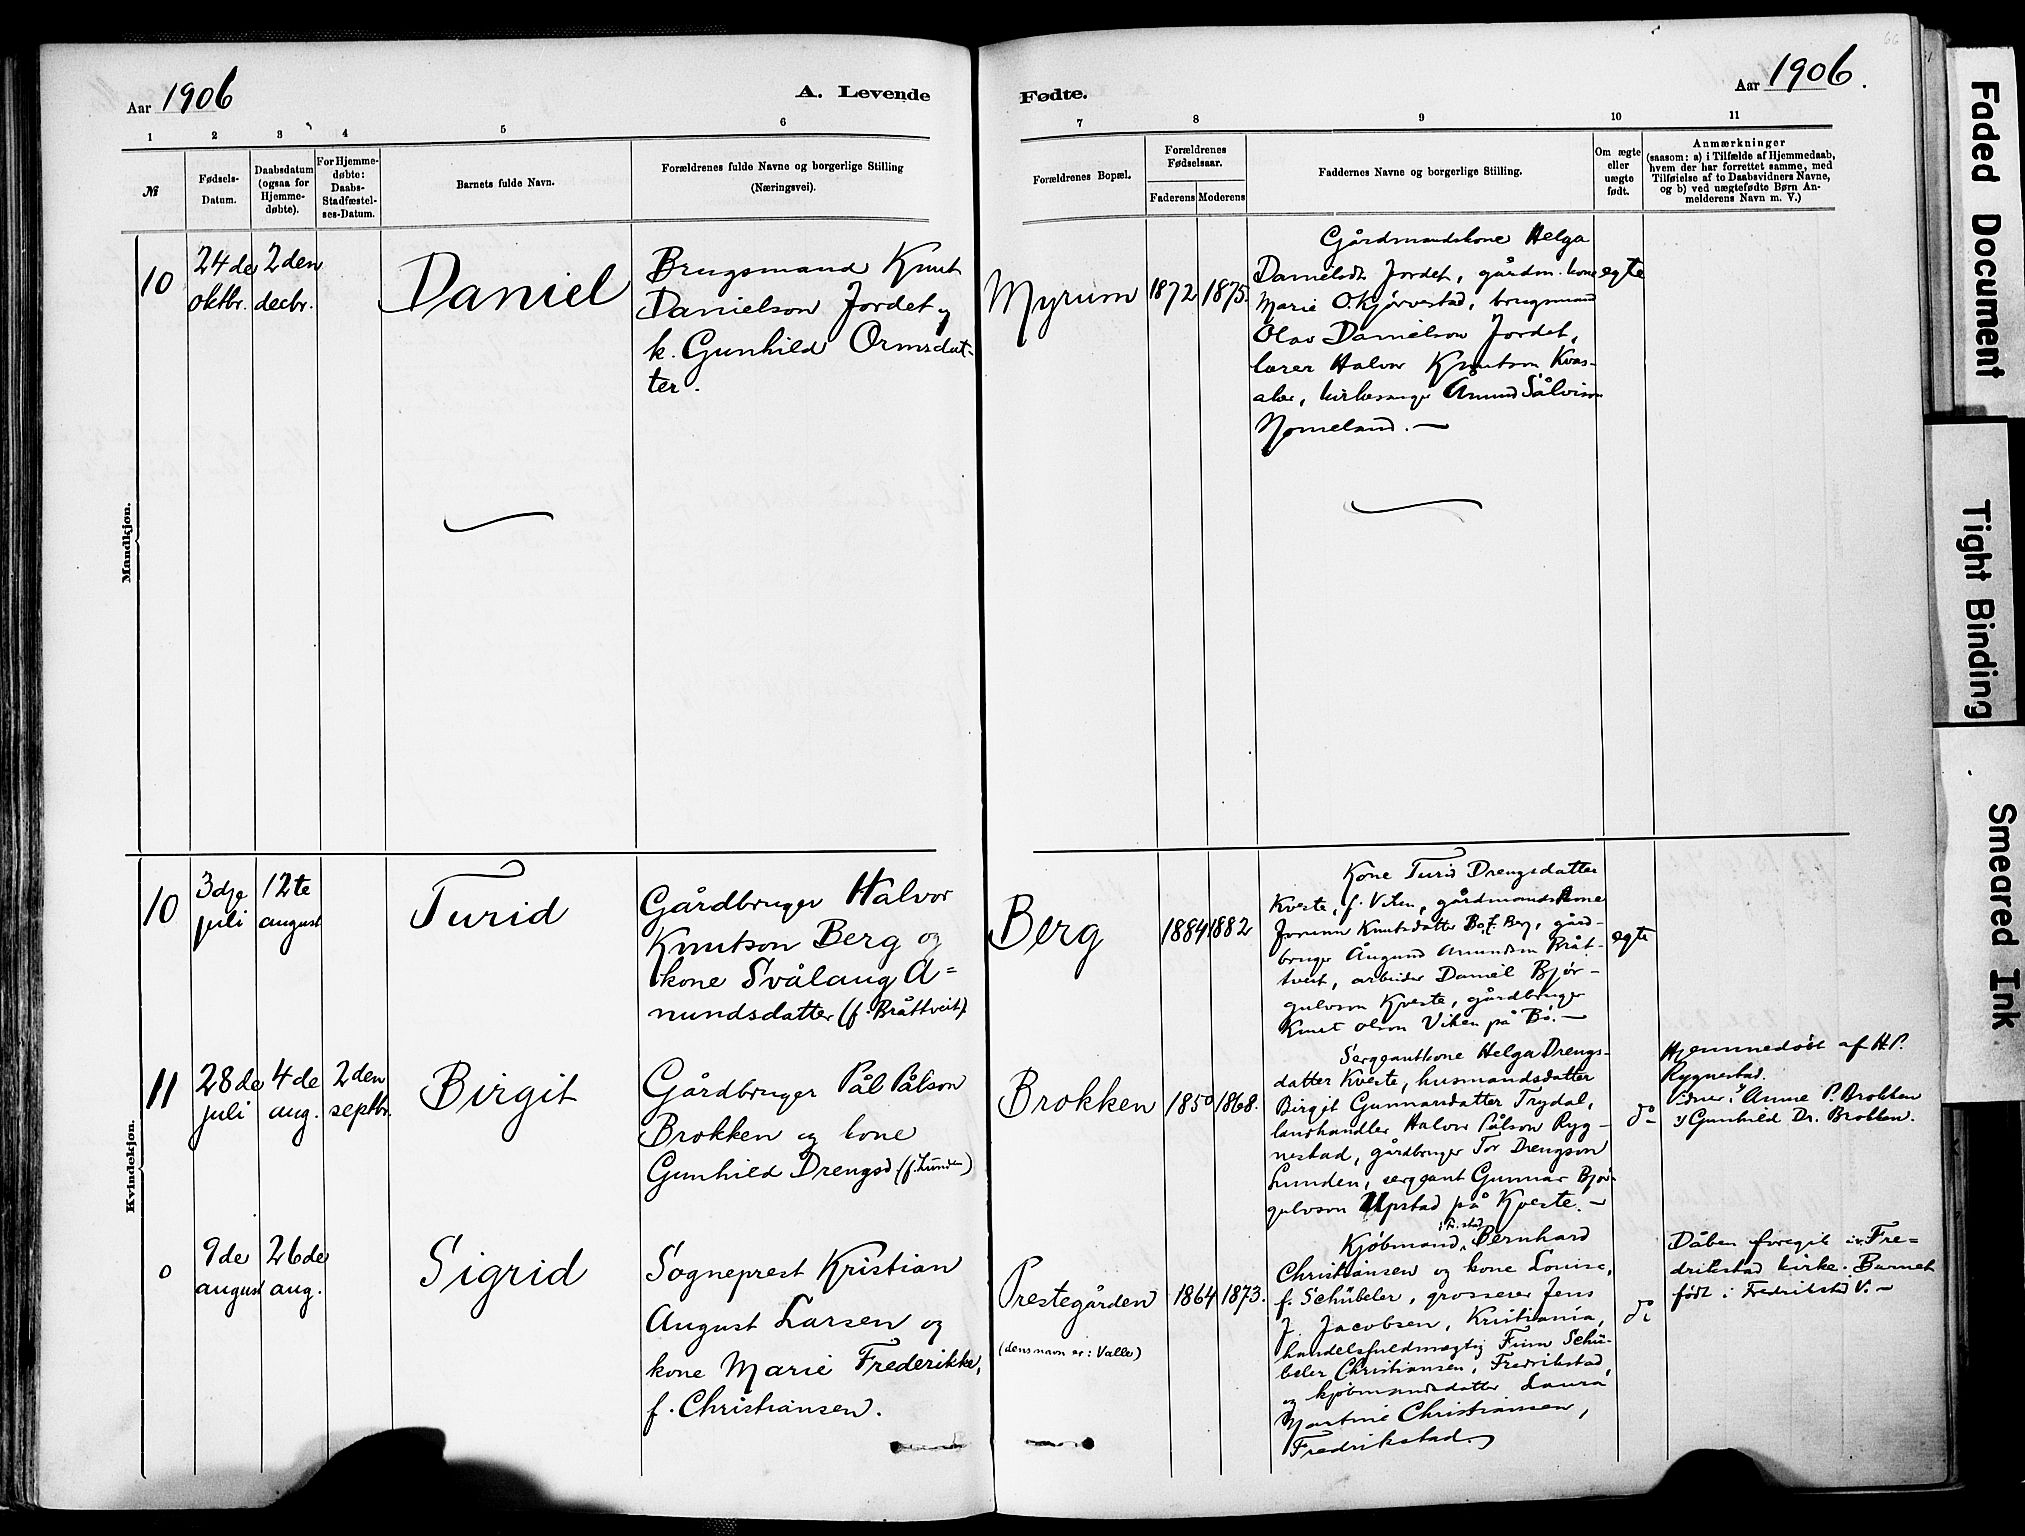 Aar 1906
A. Levende
Fødte.
Aar 1906.
66
1 2 3 4 5 6 7 8 9 10 11
№
Fødsels-
Datum.
Daabsdatum
(ogsaa for
Hjemme-
døbte).
For Hjemme-
døbte:
Daabs-
Stadfæstel-
ses-Datum.
Barnets fulde Navn.
Forældrenes fulde Navne og borgerlige Stilling
(Næringsvei).
Forældrenes Bopæl.
Forældrenes
Fødselsaar.
Faderens Moderens
Faddernes Navne og borgerlige Stilling.
Om ægte
eller
uægte
født.
Anmærkninger
(saasom: a) i Tilfælde af Hjemmedaab,
hvem der har forrettet samme, med
Tilføielse af to Daabsvidners Navne,
og b) ved uægtefødte Børn An-
melderens Navn m. V.)
Mandkjøn.
10
24de
oktbr.
2den
decbr.
Daniel
Brugsmand Knut
Danielson Jordet og
k. Gunhild Ormsdat-
ter.
Myrum
1872
1875.
Gårdmandskone Helga
Danielsdt Jordet, gårdm. kone
Marie O. Kjørvestad, brugsmand
Olav Danielson Jordet,
lærer Halvor Knutson Kvas-
aker, kirkesanger Åmund Sålvison
Nomeland. —
egte
Kvindekjøn.
10
3dje
juli
12te
august
Turid
Gårdbruger Halvor
Knutson Berg og
kone Svålaug A=
nundsdatter (f. Bråttveit)
Berg
1884
1882
Kone Turid Drengsdatter
Kveste, f. Viken, gårdmandskone
Jorunn Knutsdatter Bø f. Berg, gård-
bruger Ångund Anundson Bråt-
tveit, arbeider Daniel Bjør-
gulvson Kveste, gårdbruger
Knut Olson Viken på Bø. —
egte
11
28de
juli
4de
aug.
2den
septbr.
Birgit
Gårdbruger Pål Pålson
Brokken og kone
Gunhild Drengsd. (f. Lunden)
Brokken
1850
1868.
Sergeantkone Helga Drengs-
datter Kveste, husmandsdatter
Birgit Gunnarsdatter Trydal,
landhandler Halvor Pålson Ryg-
nestad, gårdbruger Tor Drengson
Lunden, sergeant Gunnar Bjør-
gulvson Upstad på Kveste. —
do
Hjemmedøbt af H.P.
Rygnestad.
Anne P. Brokken
Gunhild Dr. Brokken.
0
9de
august
26de
aug.
Sigrid
Sogneprest Kristian
August Larsen og
kone Marie Frederikke,
f. Christiansen.
Prestegården
(dens navn er: Valle)
1864
1873.
i Fr.stad
Kjøbmand, Bernhard
Christiansen og kone Louise,
f. Schübeler, grosserer Jens
J. Jacobsen, Kristiania,
handelsfuldmægtig Finn Schü-
beler Christiansen, Fredrikstad,
og kjøbmandsdatter Laura
Martine Christiansen,
Fredrikstad.
do
Dåben foregik i Fre=
drikstad kirke. Barnet
født i Fredrikstad V. —
Faded Document
Tight Binding
Smeared Ink